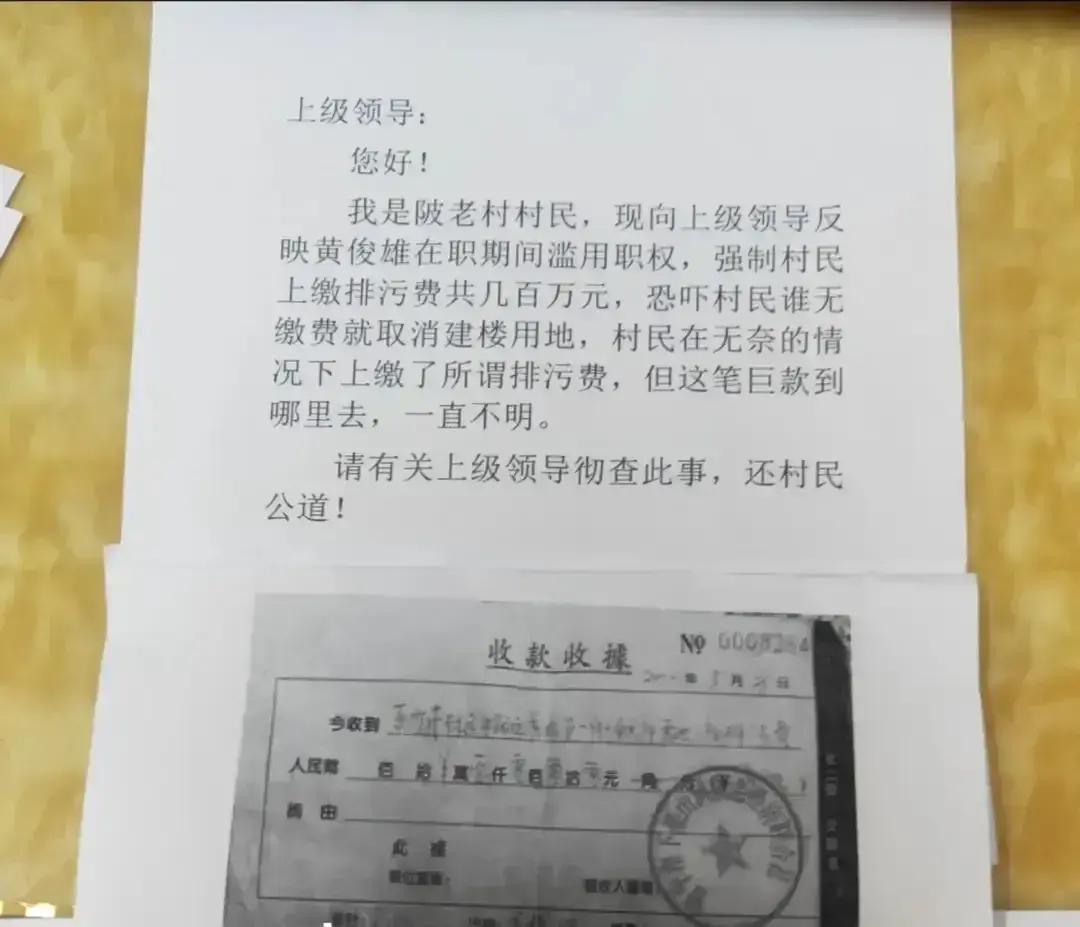 上级领导：
您好！
我是陂老村村民，现向上级领导反
映黄俊雄在职期间滥用职权，强制村民
上缴排污费共几百万元，恐吓村民谁无
缴费就取消建楼用地，村民在无奈的情
况下上缴了所谓排污费，但这笔巨款到
哪里去，一直不明。
请有关上级领导彻查此事，还村民
公道！
收款收據 № 0008264
年 5 月 日
今收到
人民幣 佰 拾 萬 仟 佰 拾 元 角
此 據